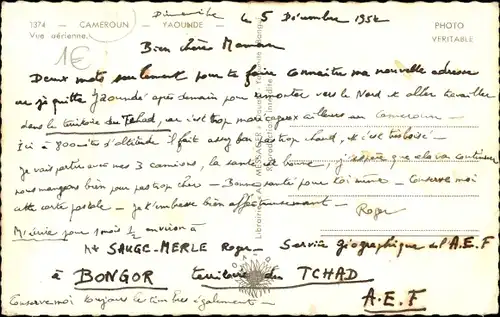 1374 - CAMEROUN - YAOUNDÉ -
Vue aérienne.
1€
PHOTO
VÉRITABLE
Dimanche le 5 Décembre 1954
Bien chère Maman
Deux mots seulement pour te faire connaître ma nouvelle adresse
je quitte Yaoundé après demain pour remonter vers le Nord et aller travailler
dans le territoire du Tchad, car c'est trop marécageux ailleurs au Cameroun -
Ici à 800 mètres d'altitude il fait assez bon pas trop chaud, et c'est
Je vais partir avec mes 3 camions, la santé est bonne, j'espère que cela va continuer
nous mangeons bien pour pas trop cher - Bonne santé pour toi même - Conserve moi
cette carte postale - je t'embrasse bien affectueusement - Roger
M'écrire pour 1 mois 1/2 environ à
Mr SAUGE-MERLE Roger - Service géographique de l'A.E.F
à BONGOR territoire du TCHAD
A.E.F
Conserve moi toujours les timbres également -